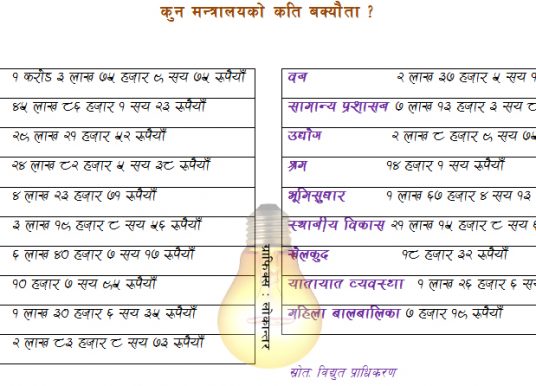 कुन मन्त्रालयको कति बक्यौता ?
१ करोड ३ लाख ७५ हजार ९ सय ७५ रुपैयाँ
४५ लाख ८६ हजार १ सय २३ रुपैयाँ
२९ लाख २१ हजार ५२ रुपैयाँ
२४ लाख ८२ हजार ५ सय ३८ रुपैयाँ
४ लाख २३ हजार ७१ रुपैयाँ
३ लाख १९ हजार ८ सय ५६ रुपैयाँ
६ लाख ४० हजार ७ सय १७ रुपैयाँ
१० हजार ७ सय ९५ रुपैयाँ
१ लाख ३० हजार ६ सय ३५ रुपैयाँ
२ लाख ८३ हजार ८ सय ७३ रुपैयाँ
ग्राफिक्स : लोकान्तर
वन २ लाख ३७ हजार ५ सय
सामान्य प्रशासन ७ लाख १३ हजार ३ सय
उद्योज २ लाख ८ हजार ९ सय ७५
श्रम १४ हजार १ सय रुपैयाँ
भूमिसुधार १ लाख ६७ हजार ४ सय १३
स्थानीय विकास २१ लाख १५ हजार ८ सय
खेलकुद १८ हजार ३२ रुपैयाँ
यातायात व्यवस्था १ लाख २६ हजार ६
महिला बालबालिका ७ हजार १९ रुपैयाँ
स्रोत: विद्युत प्राधिकरण